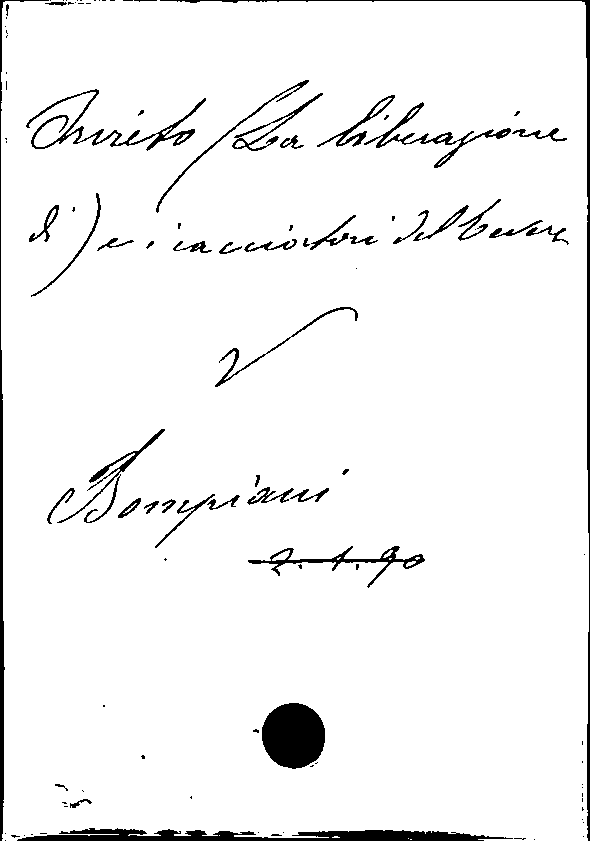 Orvieto (La liberazione
di) e i cacciatori del Tevere
V
Bompiani
2.1.90